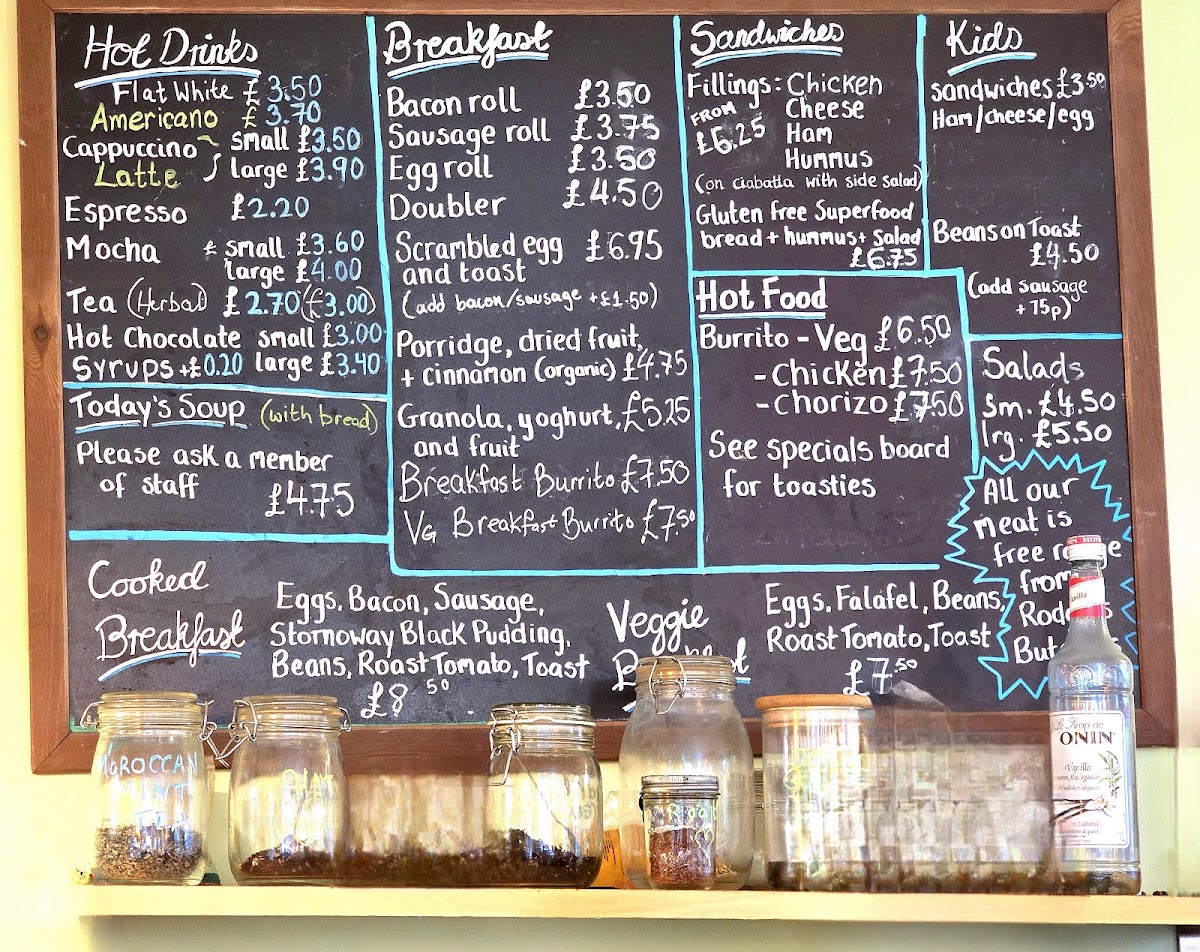 Hot Drinks
Flat White £3.50
Americano £3.70
Cappuccino small £3.50
Latte large £3.90
Espresso £2.20
Mocha small £3.60
large £4.00
Tea (Herbal) £2.70 (£3.00)
Hot Chocolate small £3.00
Syrups +£0.20 large £3.40
Today's Soup (with bread)
Please ask a member
of staff
£4.75
Breakfast
Bacon roll £3.50
Sausage roll £3.75
Egg roll £3.50
Doubler £4.50
Scrambled egg £6.95
and toast
(add bacon/sausage +£1.50)
Porridge, dried fruit,
+ cinnamon (organic) £4.75
Granola, yoghurt, £5.25
and fruit
Breakfast Burrito £7.50
VG Breakfast Burrito £7.50
Sandwiches
Fillings: Chicken
FROM Cheese
£6.25 Ham
Hummus
(on ciabatta with side salad)
Gluten free Superfood
bread + hummus + Salad
£6.75
Kids
sandwiches £3.50
Ham/cheese/egg
Beans on Toast
£4.50
(add sausage
+ 75p)
Hot Food
Burrito - Veg £6.50
- Chicken £7.50
- Chorizo £7.50
See specials board
for toasties
Salads
Sm. £4.50
lrg. £5.50
All our
meat is
free
from
Cooked
Breakfast
Eggs, Bacon, Sausage,
Stornoway Black Pudding,
Beans, Roast Tomato, Toast
£8.50
Veggie
Eggs, Falafel, Beans,
Roast Tomato, Toast
£7.50
MOROCCAN
MINT
Le Sirop de
MONIN
Vanilla